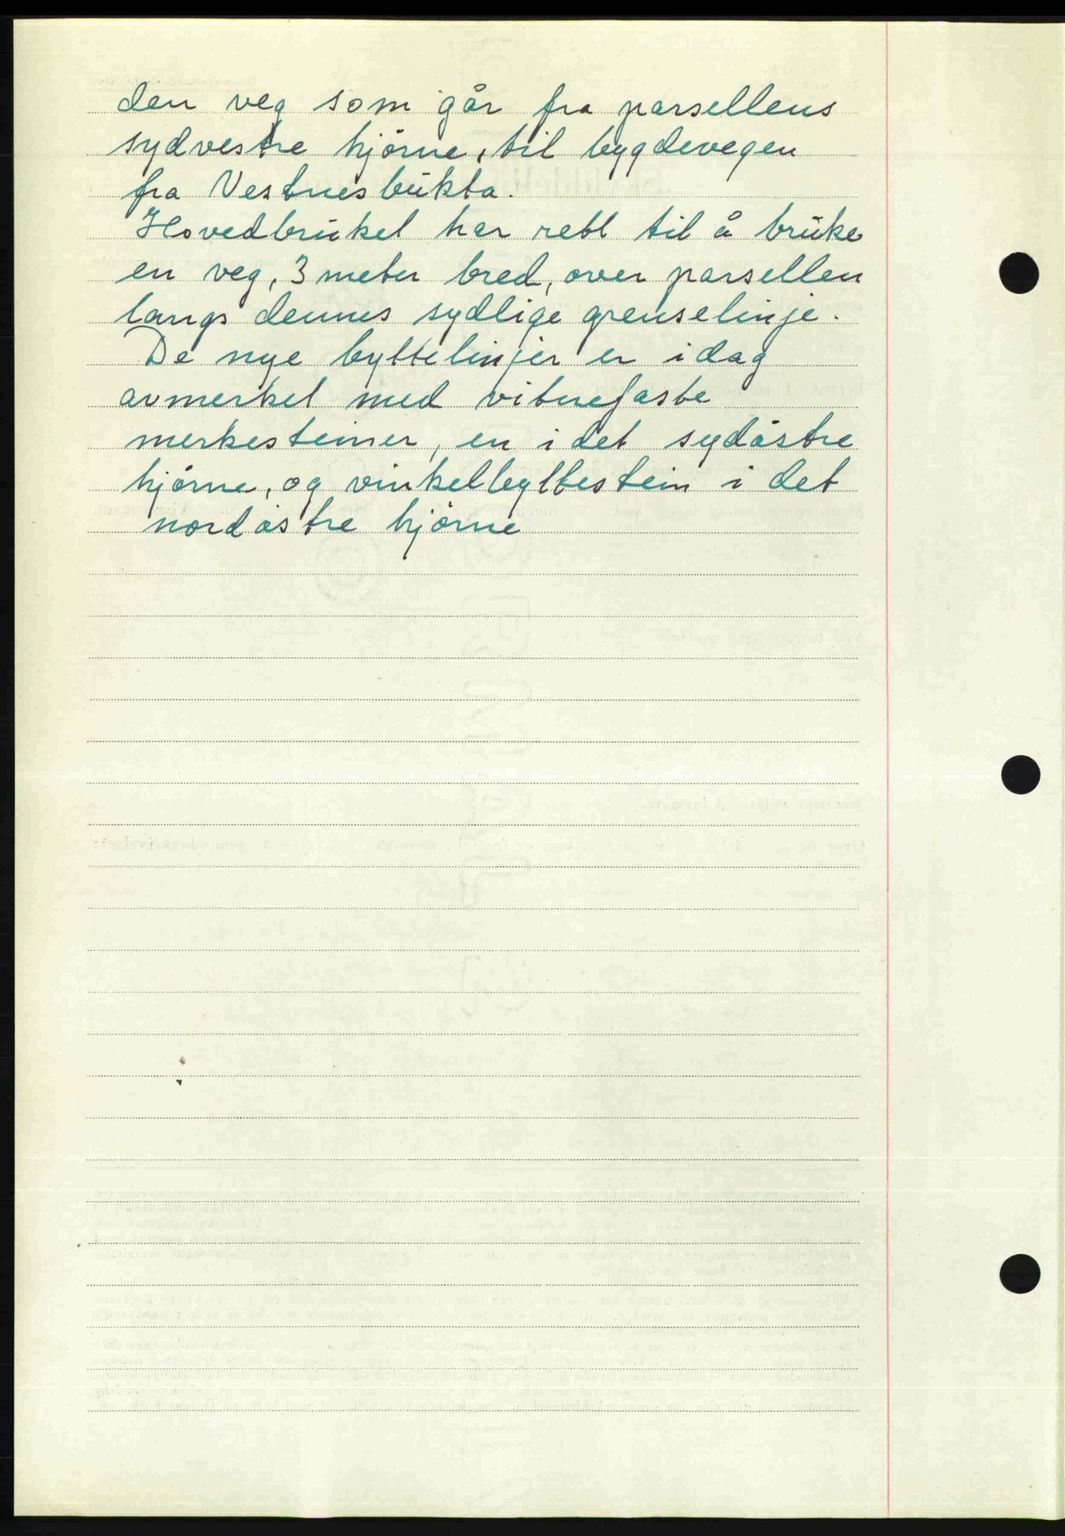 den veg som går fra parsellens
sydvestre hjörne, til bygdevegen
fra Vestnesbukta.
Hovedbruket har rett til å bruke
en veg, 3 meter bred, over parsellen
langs dennes sydlige grenselinje.
De nye byttelinjer er idag
avmerket med vitnefaste
merkesteiner, en i det sydöstre
hjörne, og vinkelbyttestein i det
nordöstre hjörne